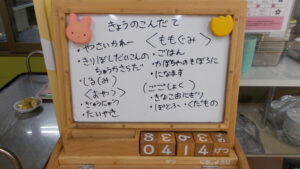 きょうのこんだて
・やさいかれー
・きりぼしだいこんの
ちゅうかさらだ
・しる(み)
〈おやつ〉
・ぎゅうにゅう
・たいやき
〈ももぐみ〉
・ごはん
・かぼちゃのそぼろに
・になます
(ごごしょく)
・きなこおにぎり
・くだもの